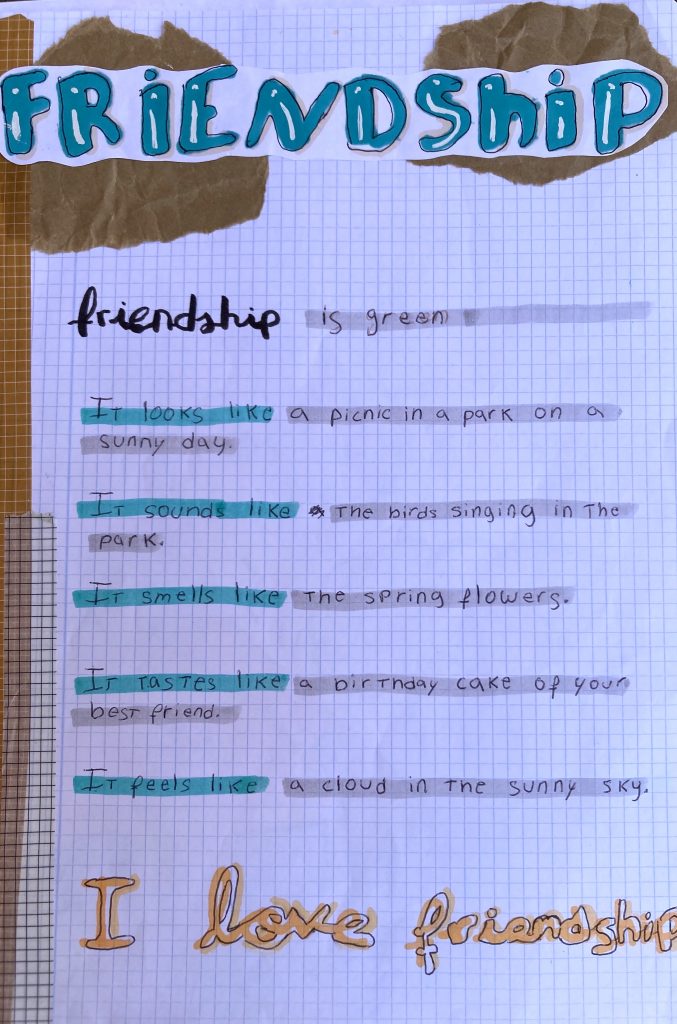 FRIENDSHIP
friendship is green
IT looks like a picnic in a park on a
sunny day.
IT sounds like The birds singing in The
park.
IT smells like The spring flowers.
IT TasTes like a birThday cake of your
besT friend.
IT feels like a cloud in The sunny sky.
I love friendship